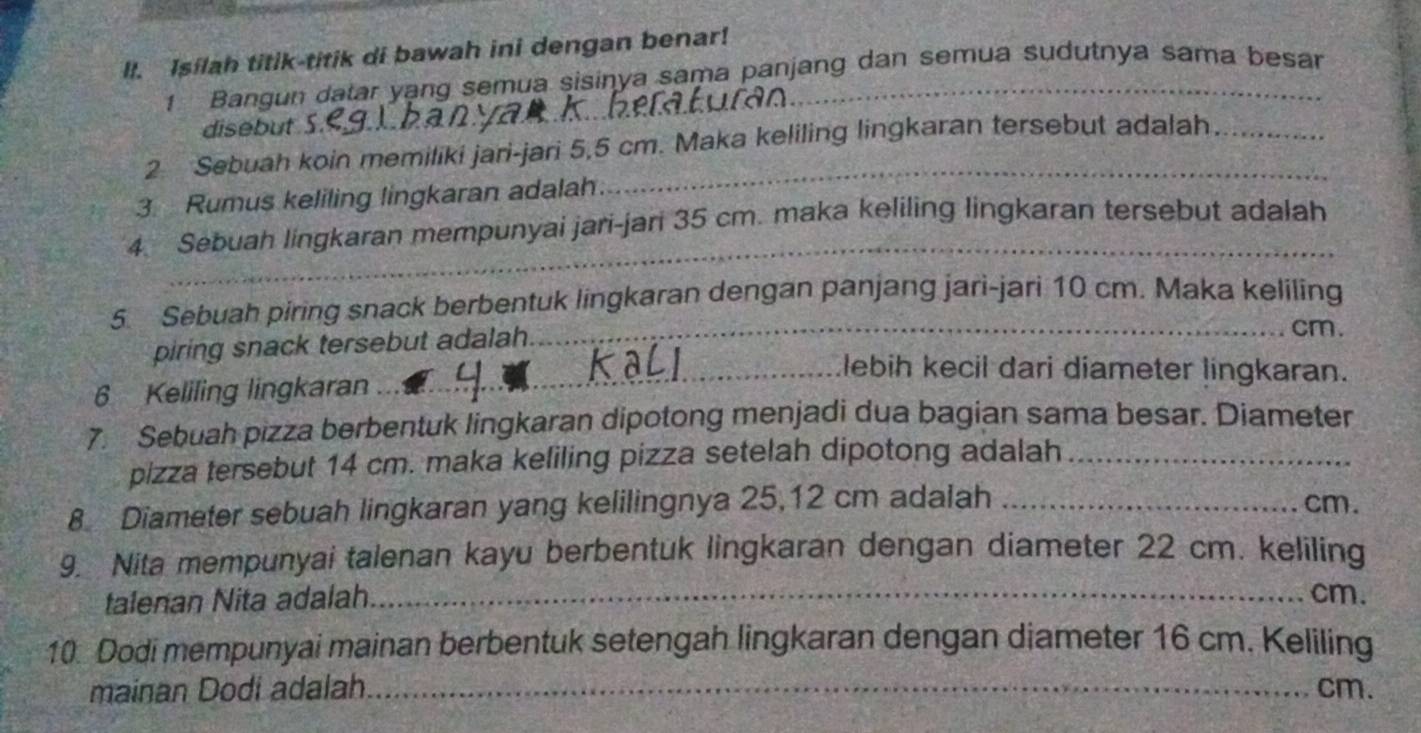 II. Isilah titik-titik di bawah ini dengan benar!
1 Bangun datar yang semua sisinya sama panjang dan semua sudutnya sama besar
disebut segi banyak beraturan
2 Sebuah koin memiliki jari-jari 5,5 cm. Maka keliling lingkaran tersebut adalah
3. Rumus keliling lingkaran adalah
4. Sebuah lingkaran mempunyai jari-jari 35 cm. maka keliling lingkaran tersebut adalah
5. Sebuah piring snack berbentuk lingkaran dengan panjang jari-jari 10 cm. Maka keliling
piring snack tersebut adalah cm.
6 Keliling lingkaran 4 kali lebih kecil dari diameter lingkaran.
7. Sebuah pizza berbentuk lingkaran dipotong menjadi dua bagian sama besar. Diameter
pizza tersebut 14 cm. maka keliling pizza setelah dipotong adalah
8. Diameter sebuah lingkaran yang kelilingnya 25,12 cm adalah cm.
9. Nita mempunyai talenan kayu berbentuk lingkaran dengan diameter 22 cm. keliling
talenan Nita adalah cm.
10. Dodi mempunyai mainan berbentuk setengah lingkaran dengan diameter 16 cm. Keliling
mainan Dodi adalah cm.